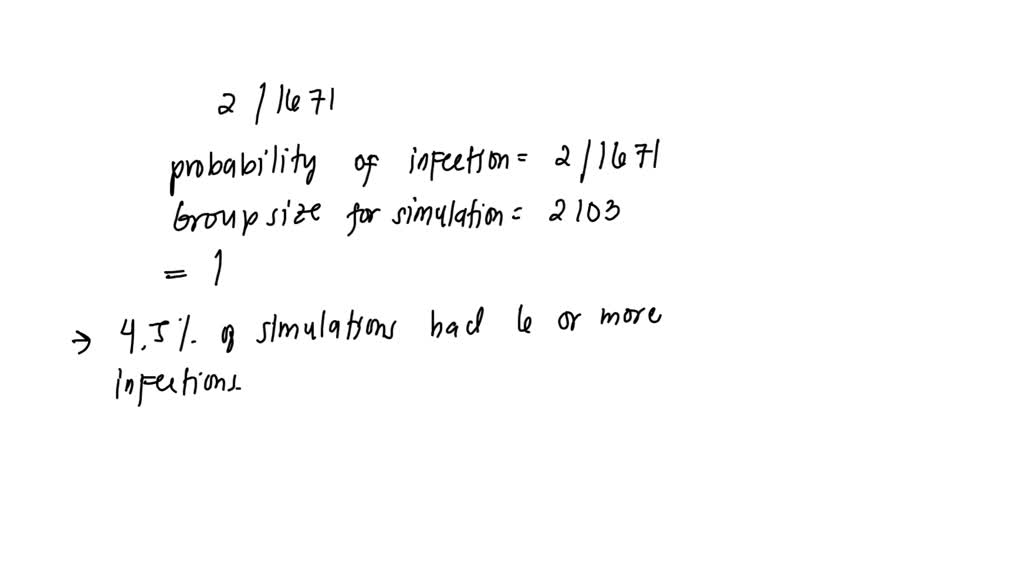 2 / 1671
probability of infection = 2 / 1671
Group size for simulation = 2103
= 1
→ 4.5% of simulations had 6 or more
infections.